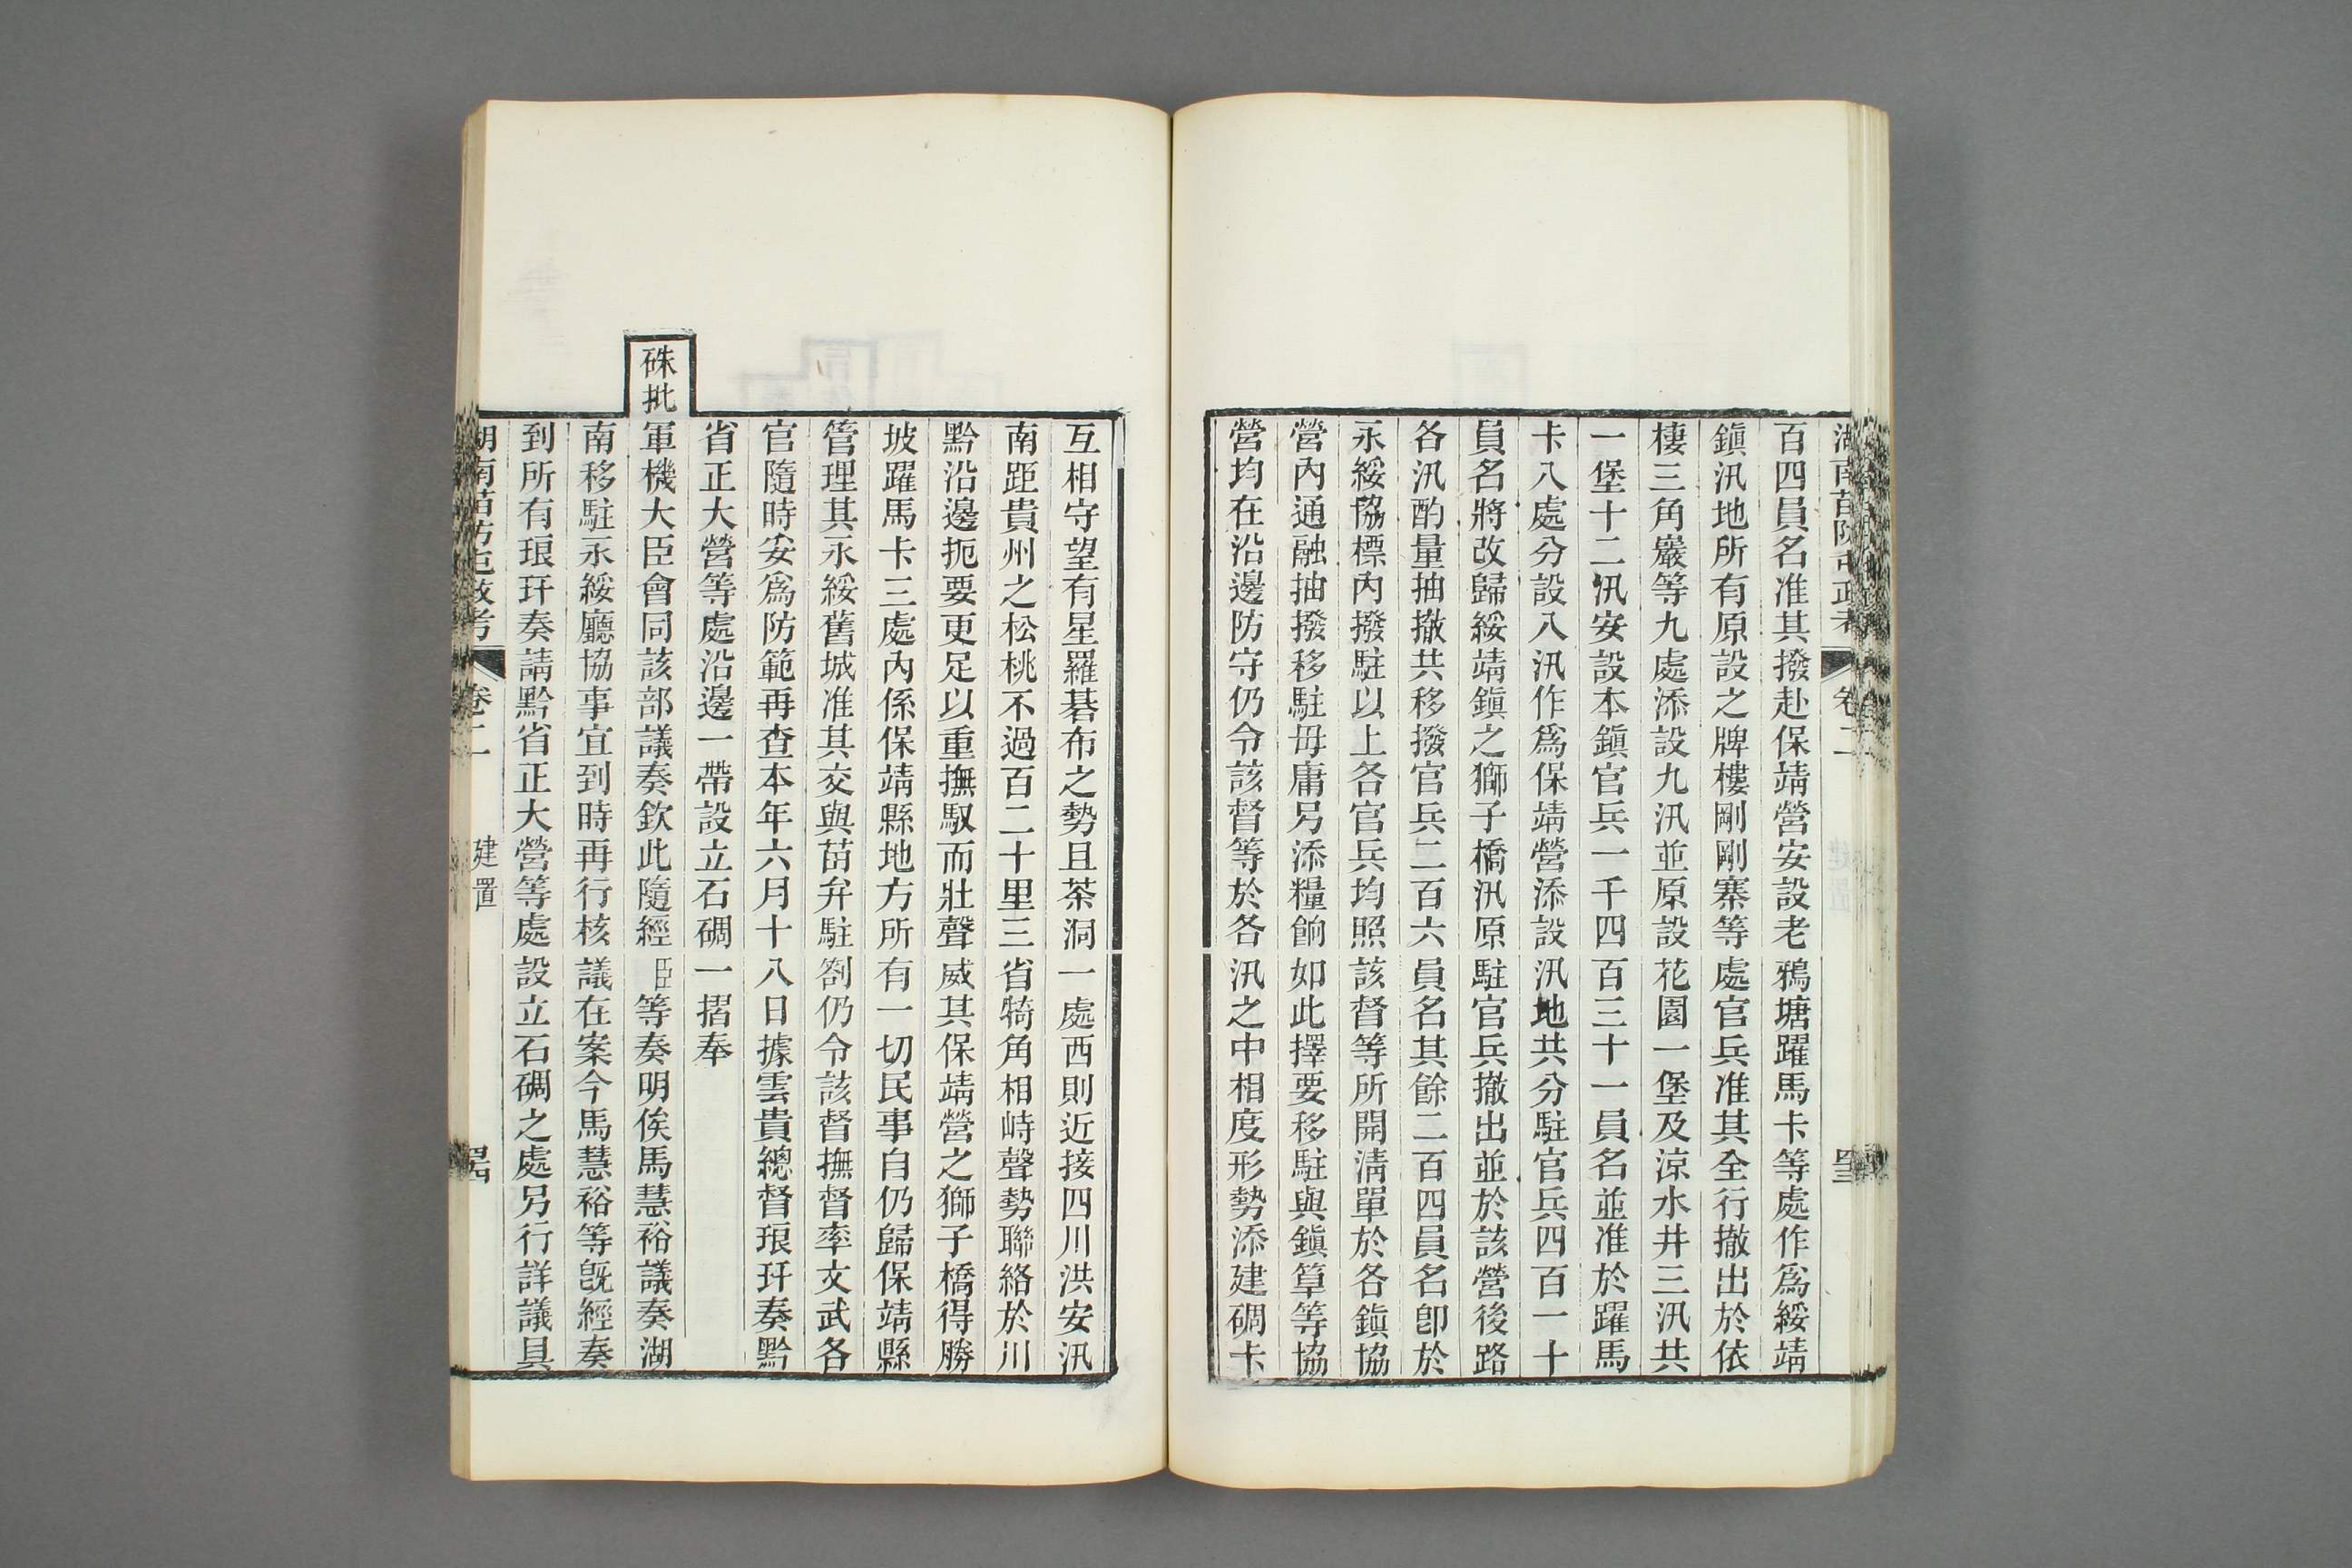 湖南苗防屯政考
卷二
百四員名准其撥赴保靖營安設老鴉塘躍馬卡等處作爲綏靖
鎭汛地所有原設之牌樓剛剛寨等處官兵准其全行撤出於依
棲三角巖等九處添設九汛並原設花園一堡及涼水井三汛共
一堡十二汛安設本鎭官兵一千四百三十一員名並准於躍馬
卡八處分設八汛作爲保靖營添設汛地共分駐官兵四百一十
員名將改歸綏靖鎭之獅子橋汛原駐官兵撤出並於該營後路
各汛酌量抽撤共移撥官兵二百六員名其餘二百四員名卽於
永綏協標內撥駐以上各官兵均照該督等所開淸單於各鎭協
營內通融抽撥移駐毋庸另添糧餉如此擇要移駐與鎭筸等協
營均在沿邊防守仍令該督等於各汛之中相度形勢添建碉卡
互相守望有星羅碁布之勢且茶洞一處西則近接四川洪安汛
南距貴州之松桃不過百二十里三省犄角相峙聲勢聯絡於川
黔沿邊扼要更足以重撫馭而壯聲威其保靖營之獅子橋得勝
坡躍馬卡三處內係保靖縣地方所有一切民事自仍歸保靖縣
管理其永綏舊城准其交與苗弁駐劄仍令該督撫督率文武各
官隨時妥爲防範再查本年六月十八日據雲貴總督琅玕奏黔
省正大營等處沿邊一帶設立石碉一摺奉
硃批軍機大臣會同該部議奏欽此隨經臣等奏明俟馬慧裕議奏湖
南移駐永綏廳協事宜到時再行核議在案今馬慧裕等旣經奏
到所有琅玕奏請黔省正大營等處設立石碉之處另行詳議具
湖南苗防屯政考
卷二
建置